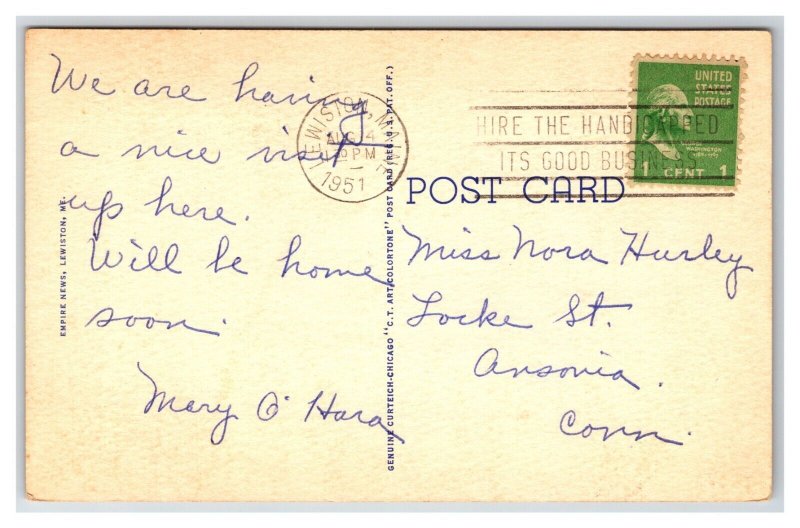 We are having
a nice visit
up here.
Will be home
soon.
Mary O'Hara
EMPIRE NEWS, LEWISTON, ME.
GENUINE CURTEICH-CHICAGO "C.T. ART-COLORTONE" POST CARD (REG. U.S. PAT. OFF.)
LEWISTON, MAINE
AUG 4
PM
1951
HIRE THE HANDICAPPED
ITS GOOD BUSINESS
UNITED
STATES
POSTAGE
WASHINGTON
1 CENT 1
POST CARD
Miss Nora Hurley
Locke St.
Ansonia.
Conn.